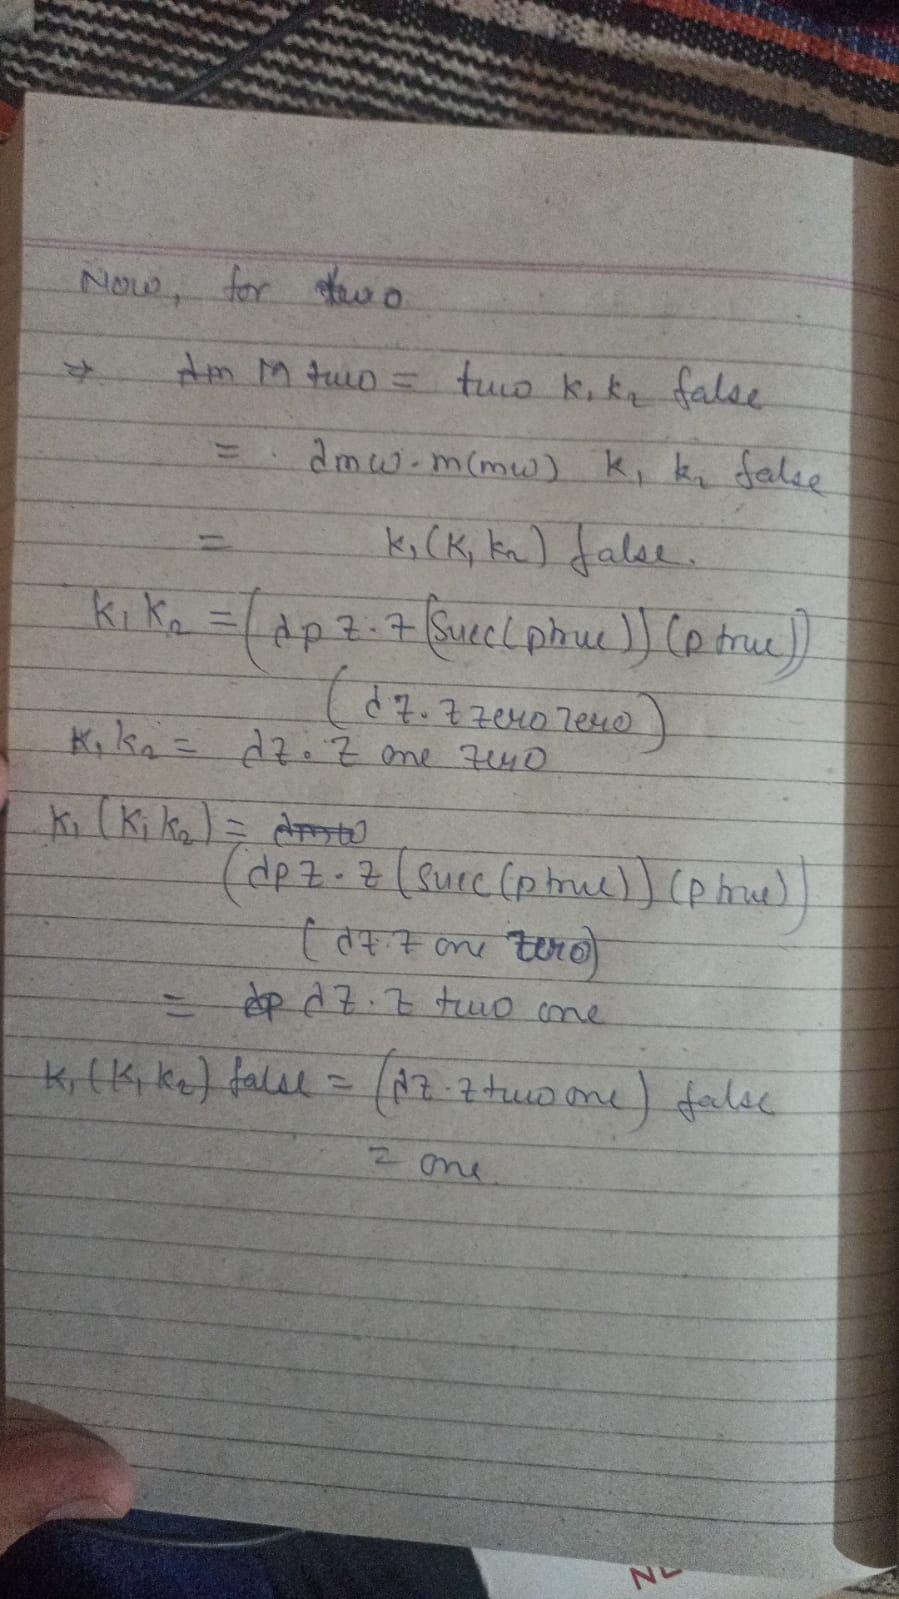 Now, for two
⇒ λm M two = two k₁ k₂ false
= λmw.m(mw) k₁ k₂ false
= k₁(k₁ k₂) false.
k₁ k₂ = (λp z.z (Succ(p true)) (p true))
(λz.z zero zero)
k₁ k₂ = λz.z one zero
k₁ (k₁ k₂) =
(λp z.z (succ(p true)) (p true))
(λz.z one zero)
= λz.z two one
k₁(k₁ k₂) false = (λz.z two one) false
= one
NL